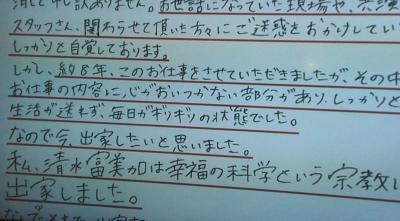 消して申し訳ありません。お世話になっていた現場や、共演
スタッフさん、関わらせて頂いた方々にご迷惑をおかけしてい
しっかりと自覚しております。
しかし、約8年、このお仕事をさせていただきましたが、その中
お仕事の内容に心がおいつかない部分があり、しっかりと
生活が送れず、毎日がギリギリの状態でした。
なので今、出家したいと思いました。
私、清水富美加は幸福の科学という宗教に
出家しました。